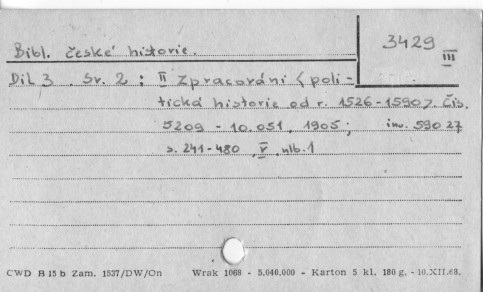 3429
III
Bibl. české historie.
Díl 3. Sv. 2 : II Zpracování (poli-
tická historie od r. 1526-1590). Čís.
5209 - 10.051, 1905; inv. 59027
s. 241-480, V, nlb. 1
CWD B 15 b Zam. 1537/DW/On Wrak 1068 - 5.040.000 - Karton 5 kl. 180 g. - 10.XII.68.